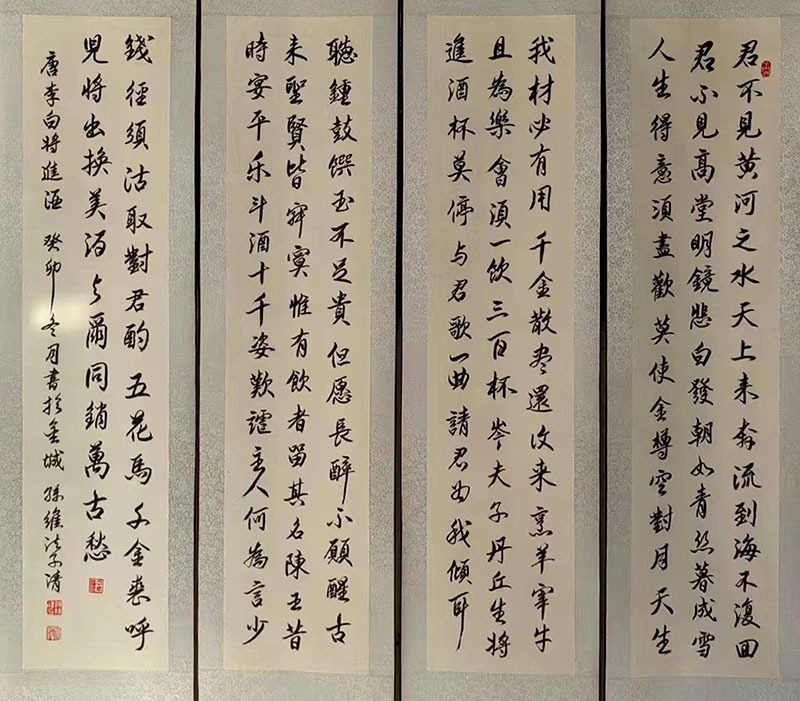 君不見黄河之水天上来奔流到海不復回
君不見高堂明鏡悲白發朝如青丝暮成雪
人生得意須盡歡莫使金樽空對月天生
我材必有用千金散尽還復来烹羊宰牛
且為樂會須一飲三百杯岑夫子丹丘生將
進酒杯莫停与君歌一曲請君为我傾耳
聽鍾鼓饌玉不足貴但愿長醉不願醒古
来聖賢皆寂寞惟有飲者留其名陳王昔
時宴平乐斗酒十千姿歡謔主人何為言少
錢徑須沽取對君酌五花馬千金裘呼
児將出換美酒与爾同銷萬古愁
唐李白將進酒 癸卯冬月書於金城 孫維